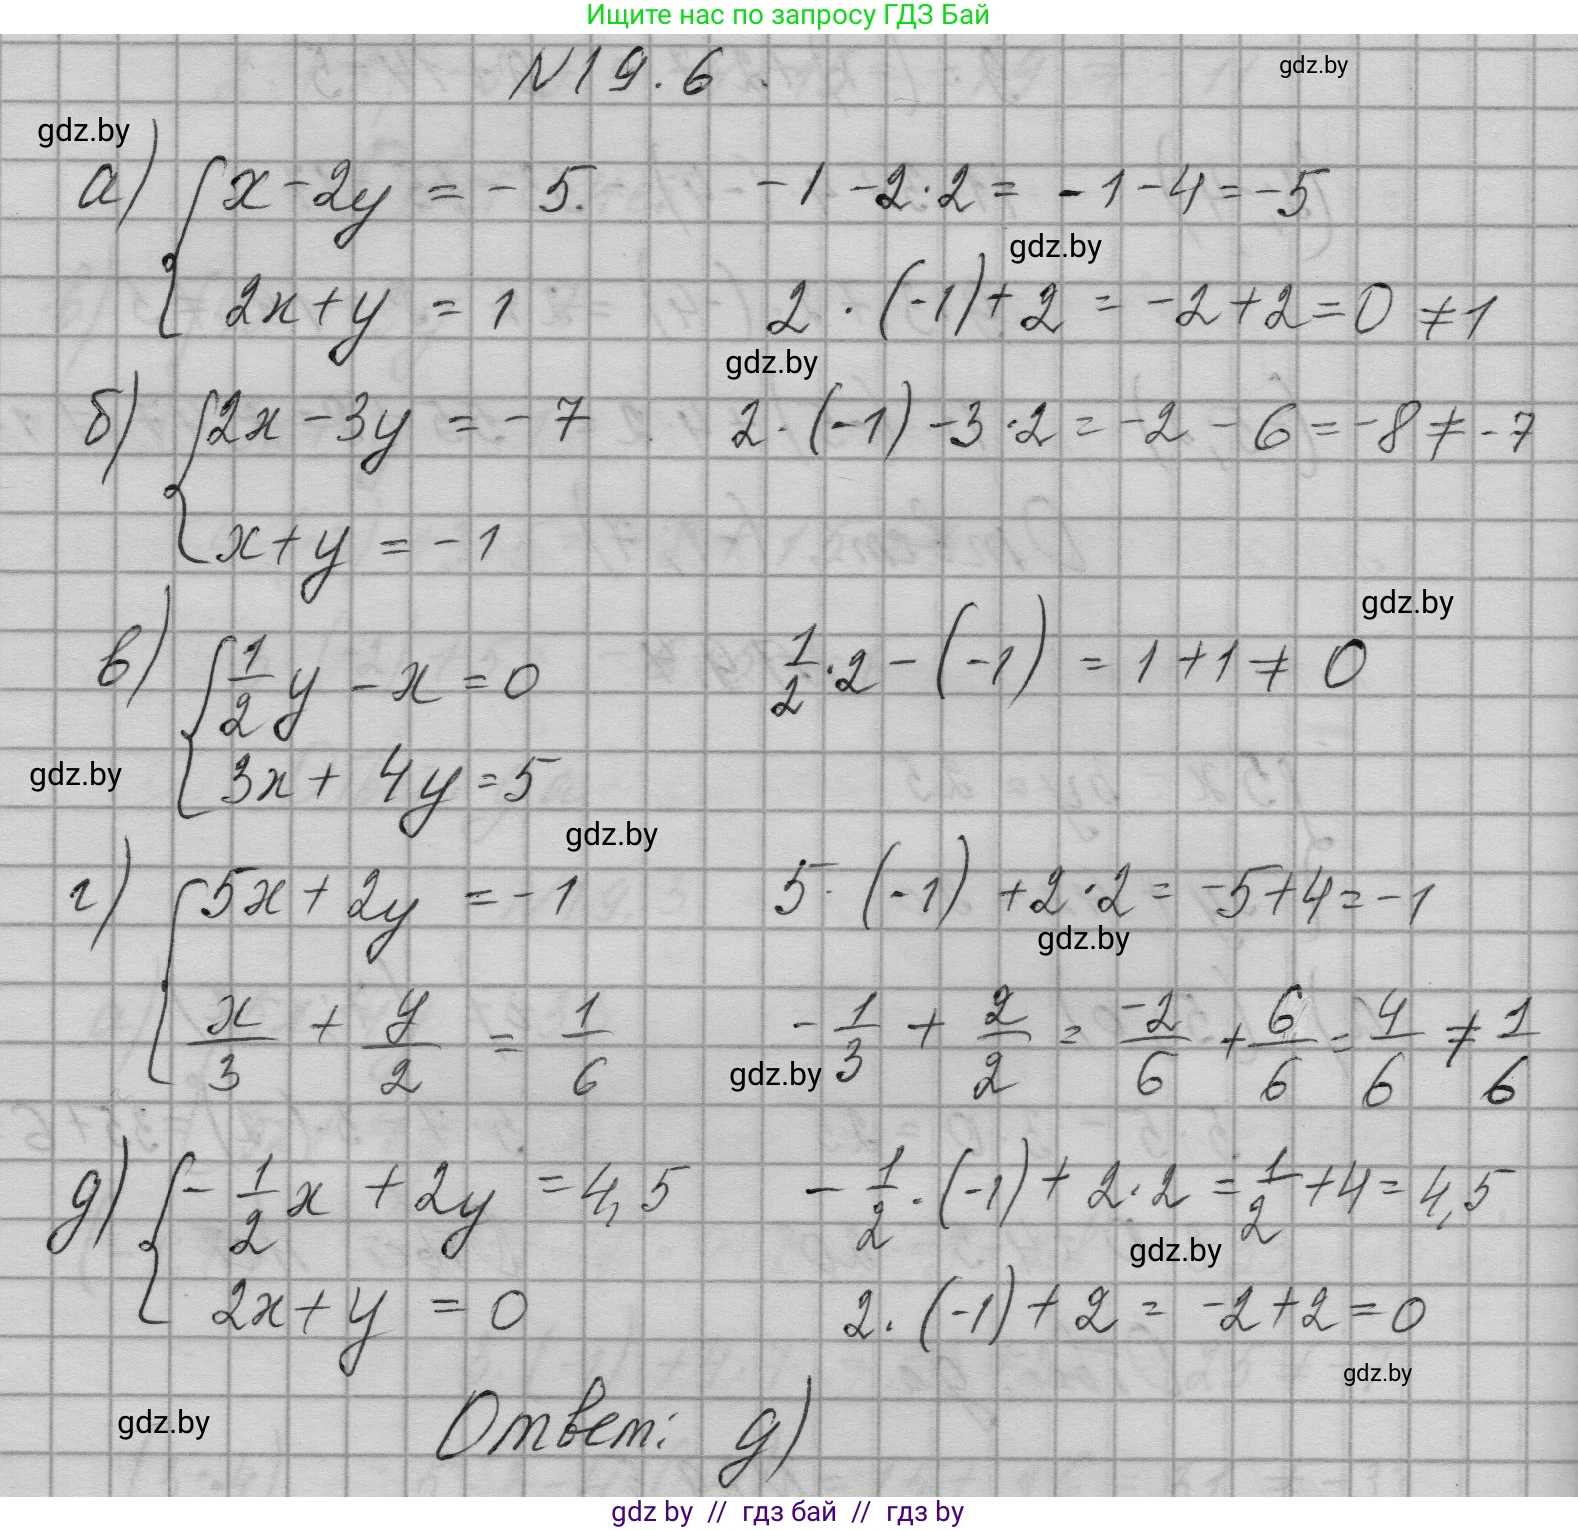 Ищите нас по запросу ГДЗ Бай
N19.6.
gdz.by
gdz.by
а) { x - 2y = - 5. -1 - 2·2 = -1 - 4 = -5
gdz.by
2x + y = 1 2·(-1) + 2 = -2 + 2 = 0 ≠ 1
gdz.by
б) { 2x - 3y = -7 2·(-1) - 3·2 = -2 - 6 = -8 ≠ -7
x + y = -1
gdz.by
в) { 1/2 y - x = 0 1/2·2 - (-1) = 1 + 1 ≠ 0
gdz.by
3x + 4y = 5
gdz.by
г) { 5x + 2y = -1 5·(-1) + 2·2 = -5 + 4 = -1
gdz.by
x/3 + y/2 = 1/6 -1/3 + 2/2 = -2/6 + 6/6 = 4/6 ≠ 1/6
gdz.by
д) { -1/2 x + 2y = 4,5 -1/2·(-1) + 2·2 = 1/2 + 4 = 4,5
gdz.by
2x + y = 0 2·(-1) + 2 = -2 + 2 = 0
gdz.by
gdz.by
Ответ: д)
gdz.by // гдз бай // гдз by